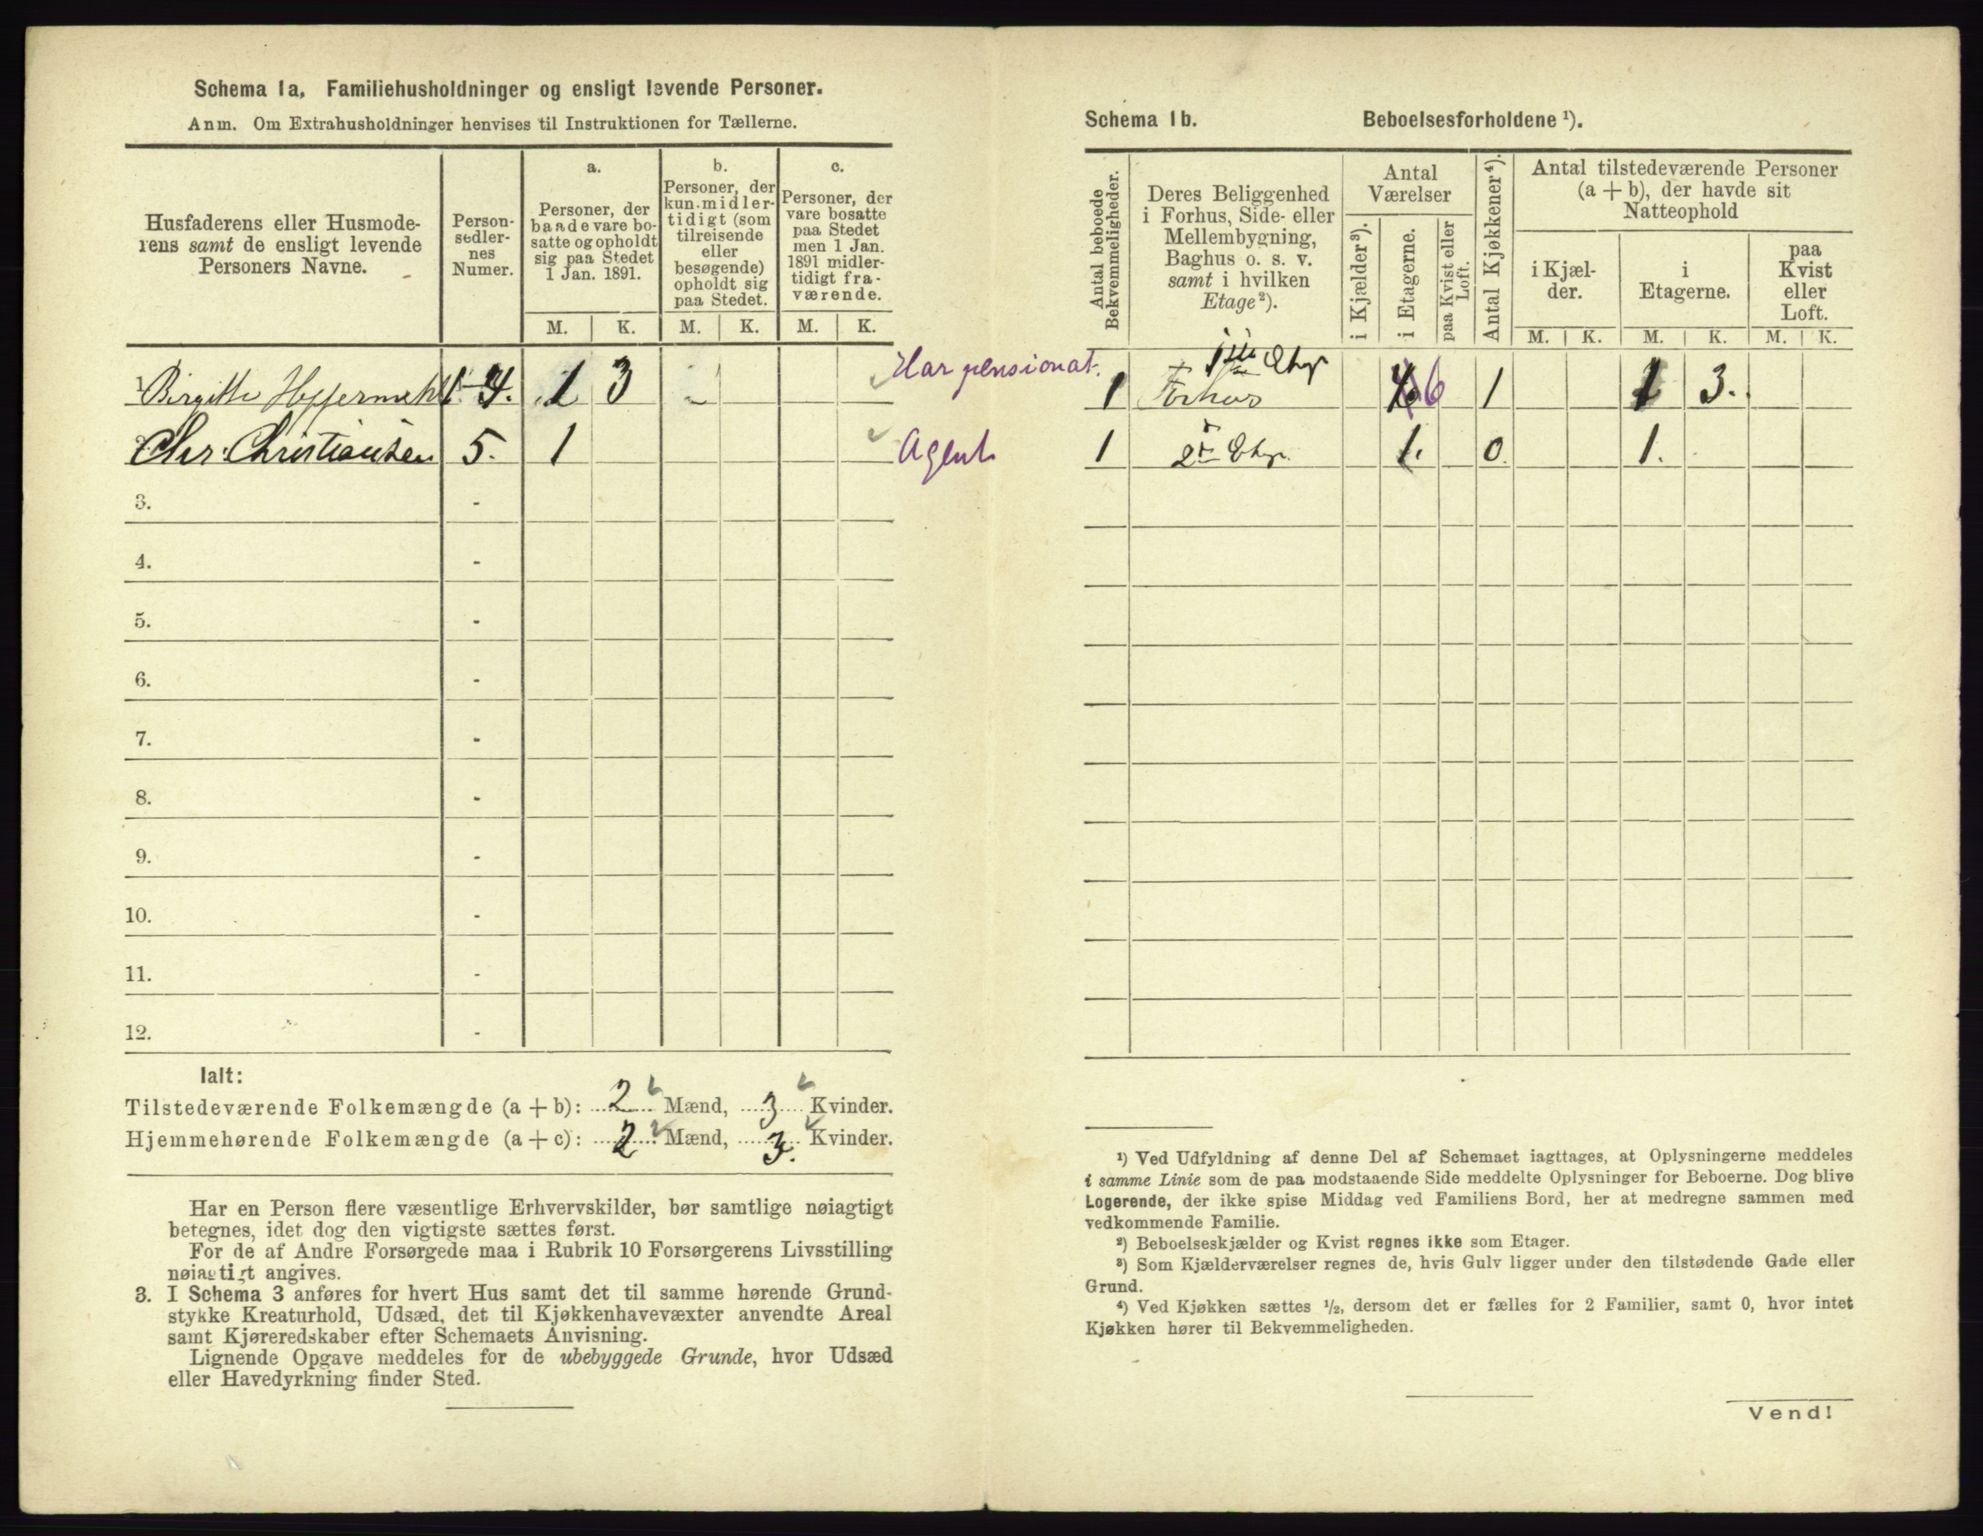 Schema 1a. Familiehusholdninger og ensligt levende Personer.
Anm. Om Extrahusholdninger henvises til Instruktionen for Tællerne.
Husfaderens eller Husmode-
rens samt de ensligt levende
Personers Navne.
Person-
sedler-
nes
Numer.
a.
Personer, der
baade vare bo-
satte og opholdt
sig paa Stedet
1 Jan. 1891.
b.
Personer, der
kun midler-
tidigt (som
tilreisende
eller
besøgende)
opholdt sig
paa Stedet.
c.
Personer, der
vare bosatte
paa Stedet
men 1 Jan.
1891 midler-
tidigt fra-
værende.
M. K. M. K. M. K.
1. Birgitte Heffermehl 1-4. 1 3 Har pensionat.
Chr. Christiansen 5. 1 Agent
3. -
4. -
5. -
6. -
7. -
8. -
9. -
10. -
11. -
12. -
Ialt:
Tilstedeværende Folkemængde (a + b): 2 Mænd, 3 Kvinder.
Hjemmehørende Folkemængde (a + c): 2 Mænd, 3. Kvinder.
Har en Person flere væsentlige Erhvervskilder, bør samtlige nøiagtigt
betegnes, idet dog den vigtigste sættes først.
For de af Andre Forsørgede maa i Rubrik 10 Forsørgerens Livsstilling
nøiagtigt angives.
3. I Schema 3 anføres for hvert Hus samt det til samme hørende Grund-
stykke Kreaturhold, Udsæd, det til Kjøkkenhavevæxter anvendte Areal
samt Kjøreredskaber efter Schemaets Anvisning.
Lignende Opgave meddeles for de ubebyggede Grunde, hvor Udsæd
eller Havedyrkning finder Sted.
Schema 1b. Beboelsesforholdene ¹).
Antal beboede
Bekvemmeligheder.
Deres Beliggenhed
i Forhus, Side- eller
Mellembygning,
Baghus o. s. v.
samt i hvilken
Etage ²).
Antal
Værelser
i Kjælder ³).
i Etagerne.
paa Kvist eller
Loft.
Antal Kjøkkener ⁴).
Antal tilstedeværende Personer
(a + b), der havde sit
Natteophold
i Kjæl-
der.
i
Etagerne.
paa
Kvist
eller
Loft.
M. K. M. K. M. K.
1 Forhus 6 1 1 3.
1 1. 0. 1.
¹) Ved Udfyldning af denne Del af Schemaet iagttages, at Oplysningerne meddeles
i samme Linie som de paa modstaaende Side meddelte Oplysninger for Beboerne. Dog blive
Logerende, der ikke spise Middag ved Familiens Bord, her at medregne sammen med
vedkommende Familie.
²) Beboelseskjælder og Kvist regnes ikke som Etager.
³) Som Kjælderværelser regnes de, hvis Gulv ligger under den tilstødende Gade eller
Grund.
⁴) Ved Kjøkken sættes ½, dersom det er fælles for 2 Familier, samt 0, hvor intet
Kjøkken hører til Bekvemmeligheden.
Vend!